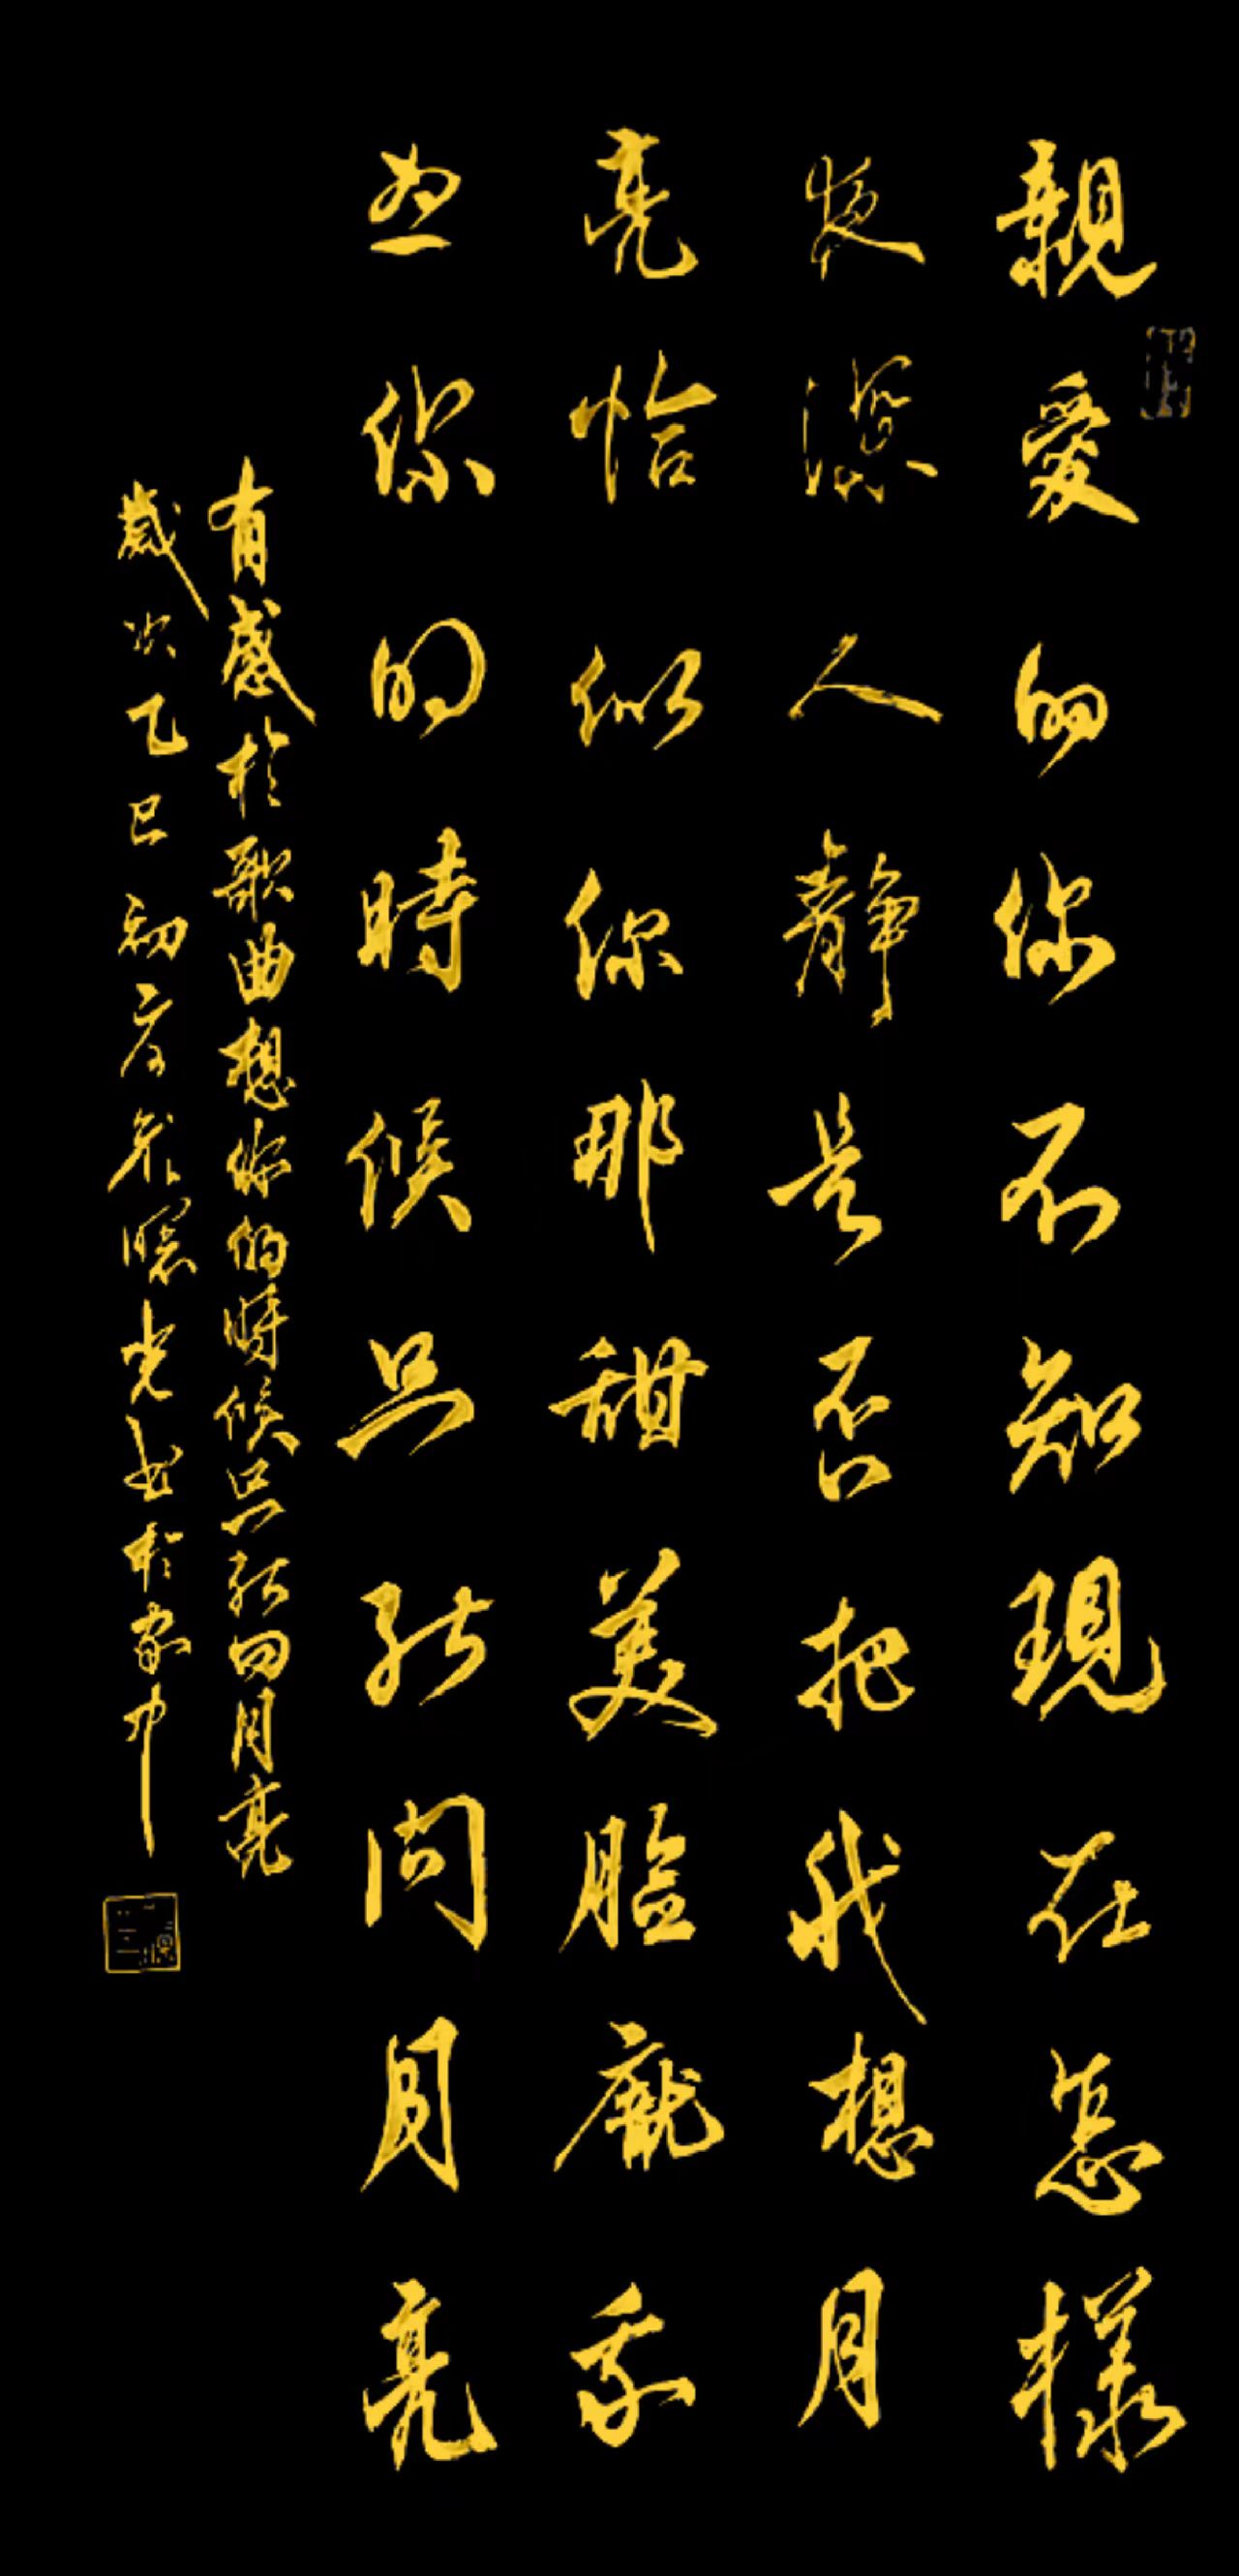 親愛的你不知現在怎樣
夜深人靜是否把我想月
亮恰似你那甜美臉龐每
當你的時候只能問月亮
有感於歌曲想你的時候只能問月亮
歲次乙巳初秋 曙光書於家中